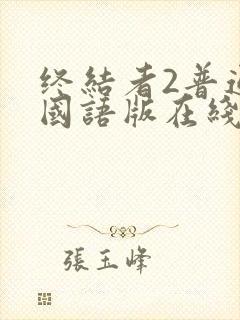 终結者2普通
國語版在綫
張玉峰